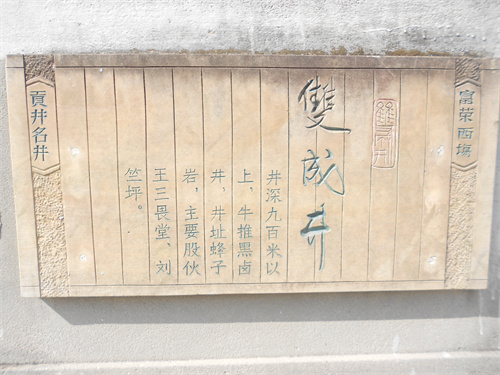 富荣西塲
雙成井
井深九百米以
上、牛推黑卤
井，井址蜂子
岩，主要股伙
王三畏堂、刘
竺坪。
貢井名井